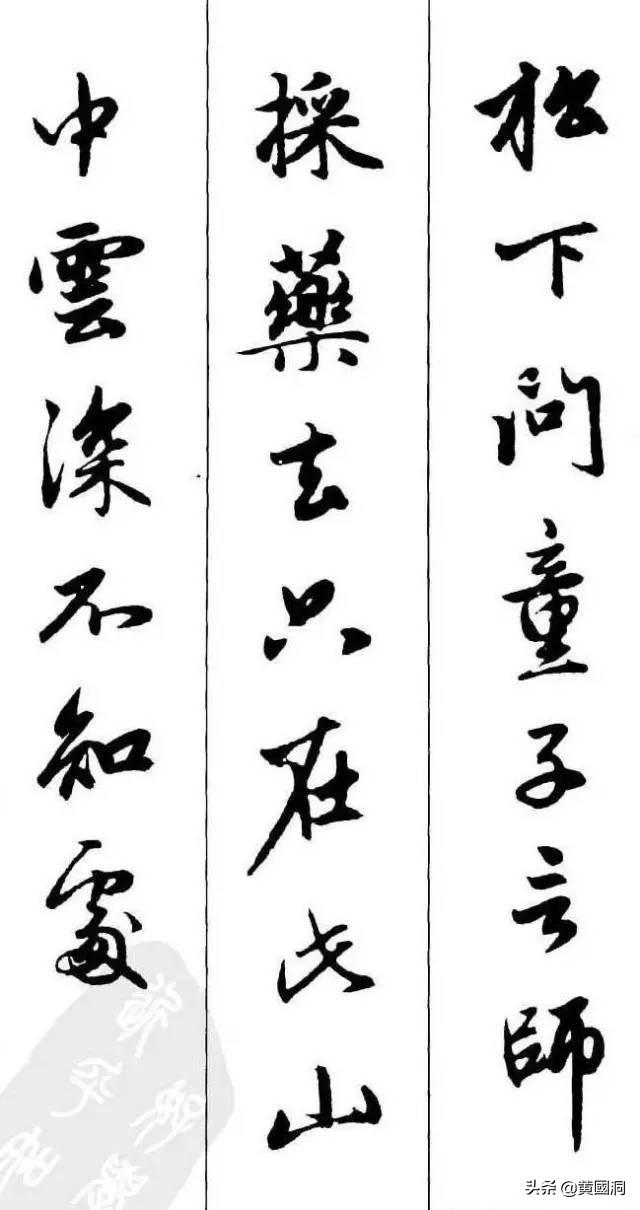 松下问童子言師
採藥去只在此山
中雲深不知處
头条 @黄國洞